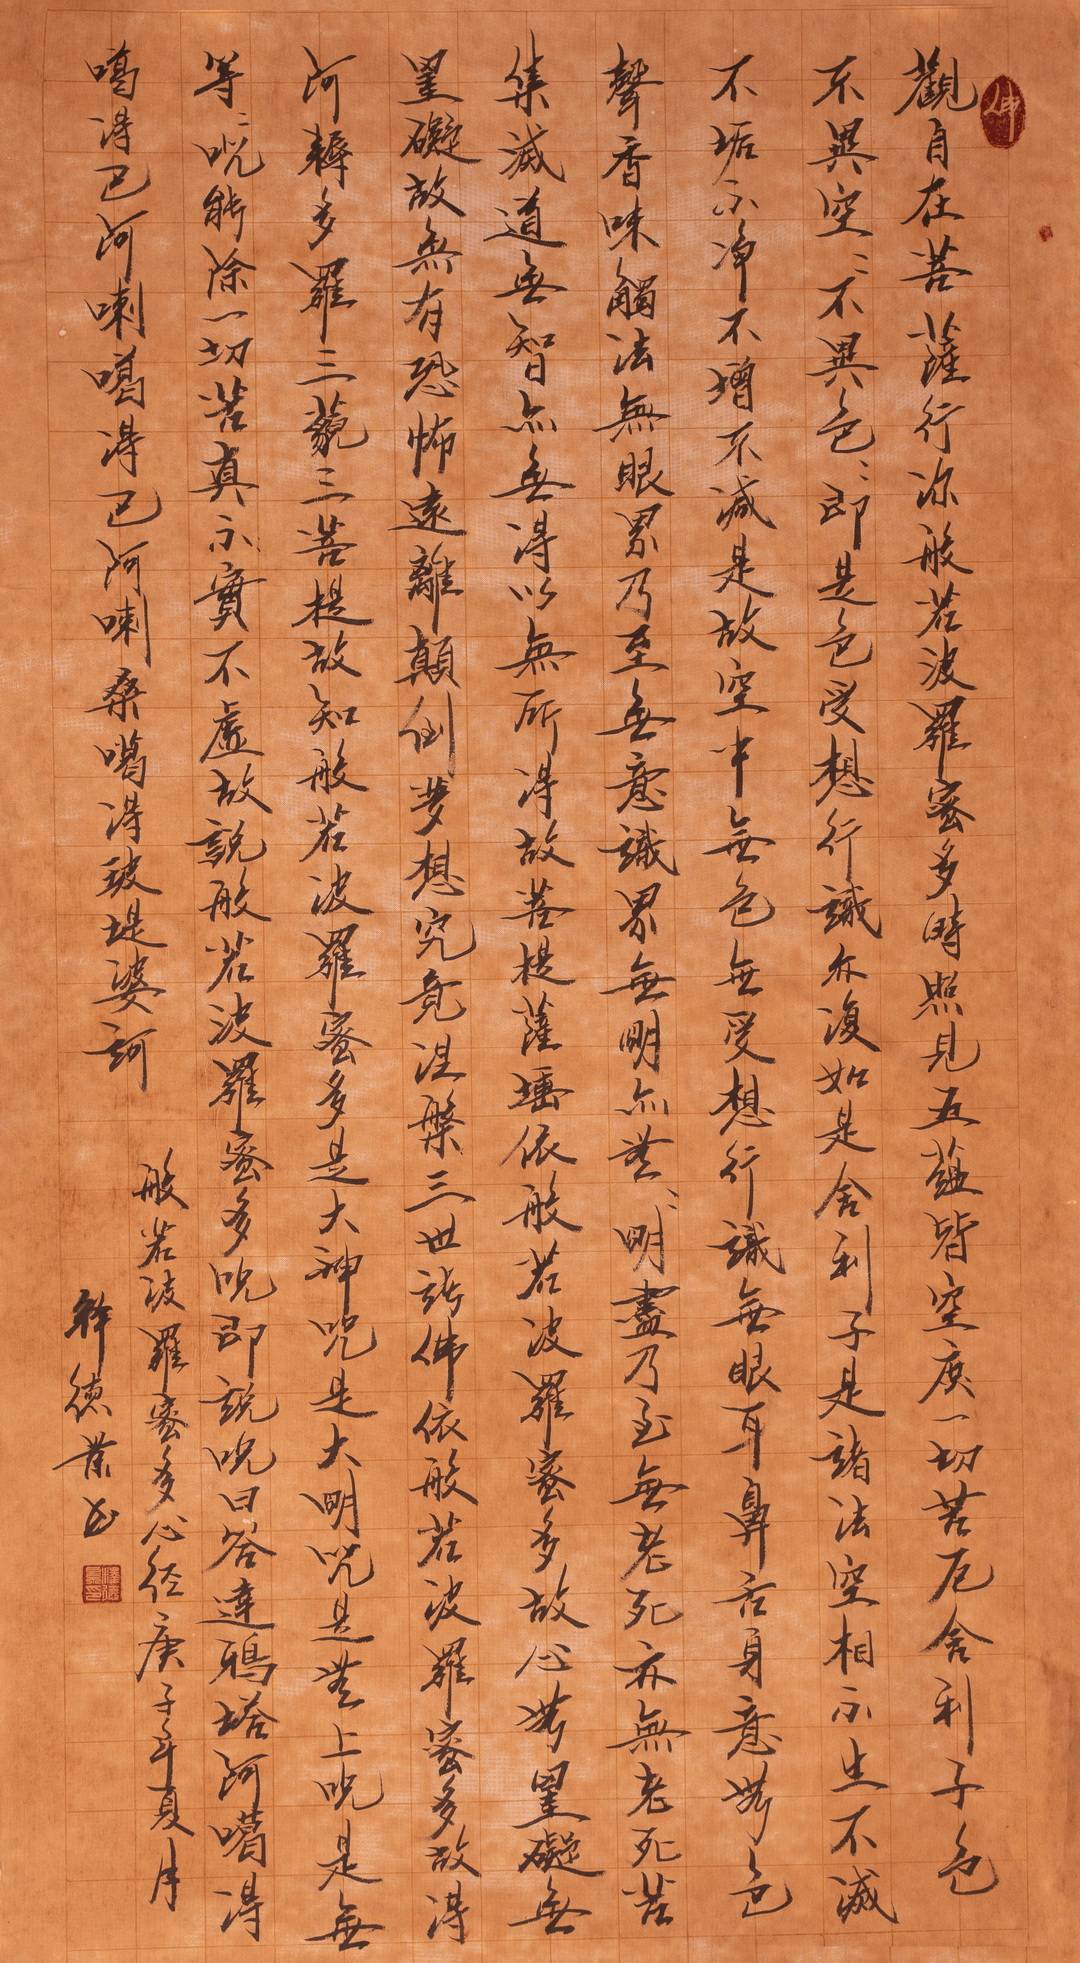 佛
觀自在菩薩行深般若波羅蜜多時照見五蘊皆空度一切苦厄舍利子色
不異空〻不異色〻即是色受想行識亦復如是舍利子是諸法空相不生不滅
不垢不净不增不減是故空中無色無受想行識無眼耳鼻舌身意無色
聲香味觸法無眼界乃至無意識界無明亦無〻明盡乃至無老死亦無老死苦
集滅道無智亦無得以無所得故菩提薩埵依般若波羅蜜多故心無罣礙無
罣礙故無有恐怖遠離顛倒夢想究竟涅槃三世諸佛依般若波羅蜜多故得
阿耨多羅三藐三菩提故知般若波羅蜜多是大神咒是大明咒是無上咒是無
等〻咒能除一切苦真不實不虛故說般若波羅蜜多咒即說咒曰答達鴉塔阿噶得
噶得巴阿喇噶得巴阿喇桑噶得玻堤婆訶
般若波羅蜜多心经庚子年夏月
釋德業书